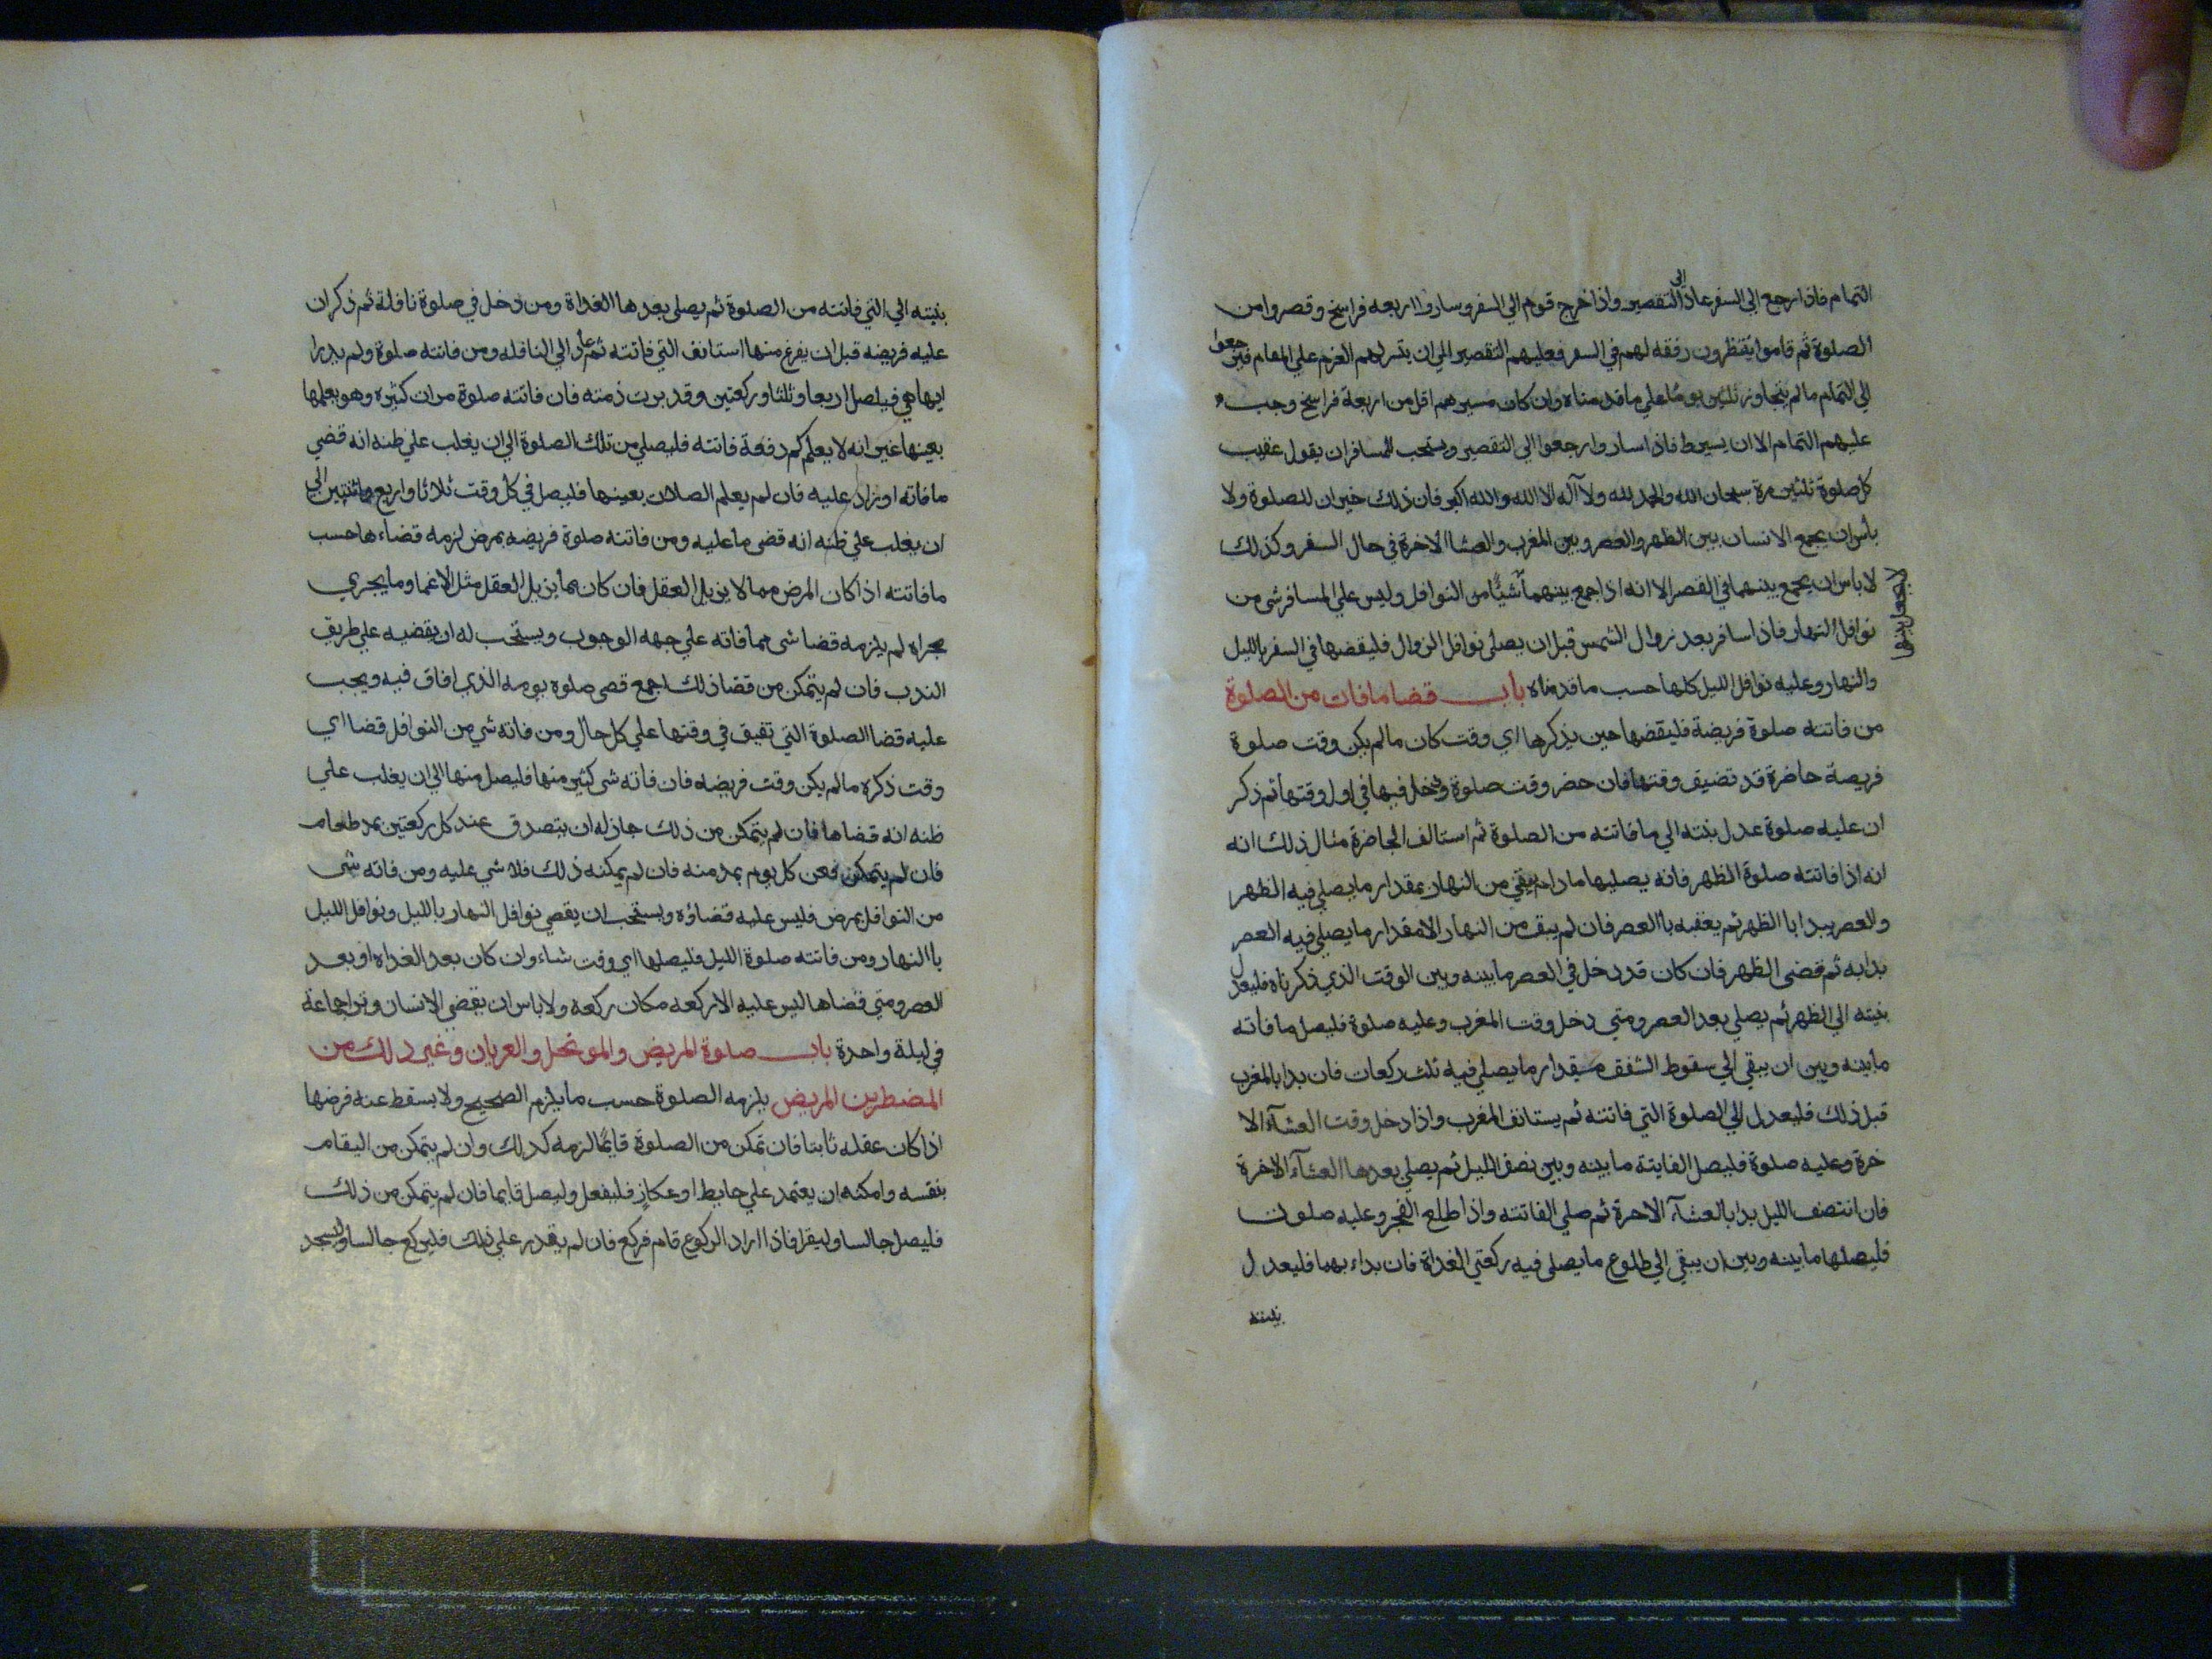 التمام فاذا رجع الي السفر عاد الى التقصير واذا خرج قوم الي السفر وساروا اربعه فراسخ وقصروا من
الصلوة ثم قاموا ينتظرون رفقه لهم في السفر فعليهم التقصير الي ان يتيسر لهم العزم علي المقام فيرجعوا
الي التمام ما لم يتجاوز ثلثين يوما علي ما قدمناه وان كان مسيرهم اقل من اربعة فراسخ وجب
عليهم التمام الا ان يسيروا فاذا ساروا رجعوا الي التقصير ويستحب للمسافر ان يقول عقيب
كل صلوة ثلثين مرة سبحان الله والحمد لله ولا آله الا الله والله اكبر فان ذلك خيران للصلوة ولا
بأس ان يجمع الانسان بين الظهر والعصر وبين المغرب والعشا الاخرة في حال السفر وكذلك
لا باس ان يجمع بينهما في القصر الا انه اذا جمع بينهما شيئا من النوافل وليس علي المسافر شى من
لا يجعل بينهما
نوافل النهار فاذا سافر بعد زوال الشمس قبل ان يصلى نوافل الزوال فليقضها في السفر بالليل
والنهار وعليه نوافل الليل كلها حسب ما قدمناه باب قضا ما فات من الصلوة
من فاتته صلوة فريضة فليقضها حين يذكرها اي وقت كان ما لم يكن وقت صلوة
فريضة حاضرة قد تضيق وقتها فان حضر وقت صلوة ودخل فيها في اول وقتها ثم ذكر
ان عليه صلوة عدل بنته الي ما فاتته من الصلوة ثم استالف الحاضرة مثال ذلك انه
انه اذا فاتته صلوة الظهر فانه يصليها ما دام يبقي من النهار بمقدار ما يصلي فيه الظهر
والعصر يبدا با الظهر ثم يعقبه با العصر فان لم يبق من النهار الا مقدار ما يصلي فيه العصر
بدا به ثم قضى الظهر فان كان قد دخل في العصر ما بينه وبين الوقت الذي ذكرناه فليعدل
بنيته الي الظهر ثم يصلي بعد العصر ومتي دخل وقت المغرب وعليه صلوة فليصل ما فاته
ما بينه وبين ان يبقي الي سقوط الشفق مقدار ما يصلي فيه ثلث ركعات فان بدا بالمغرب
قبل ذلك فليعدل الي الصلوة التي فاتته ثم يستانف المغرب واذا دخل وقت العشآء الا
خرة وعليه صلوة فليصل الفايتة ما بينه وبين نصف الليل ثم يصلي بعدها العشآء الاخرة
فان انتصف الليل بدا بالعشآء الاخرة ثم صلي الفائتته واذا طلع الفجر وعليه صلوة
فليصلها ما بينه وبين ان يبقي الي طلوع ما يصلى فيه ركعتي الغداة فان بداء بهما فليعدل
بنيته
بنيته الي التي فاتته من الصلوة ثم يصلي بعدها الغداة ومن دخل في صلوة نافلة ثم ذكر ان
عليه فريضه قبل ان يفرغ منها استانف التي فاتته ثم عاد الي النافله ومن فاتته صلوة ولم يدر
ايها هي فيلصل اربعا وثلثا وركعتين وقد بريت ذمته فان فاتته صلوة مرات كثيره وهو يعلمها
بعينها غير انه لا يعلم كم دفعة فاتته فليصلي من تلك الصلوة الي ان يغلب علي ظنه انه قضي
ما فاته او زاد عليه فان لم يعلم الصلات بعينها فليصل في كل وقت ثلاثا واربع واثنتين الي
ان يغلب علي ظنه انه قضى ما عليه ومن فاتته صلوة فريضه بمرض لزمه قضاءها حسب
ما فاتته اذا كان المرض مما لا يزيل العقل فان كان مما يزيل العقل مثل الاغما وما يجري
مجراه لم يلزمه قضا شى مما فاته علي جهه الوجوب ويستحب له ان يقضيه علي طريق
الندب فان لم يتمكن من قضا ذلك اجمع قضى صلوة يومه الذي افاق فيه ويجب
عليه قضا الصلوة التي تفيق في وقتها علي كل حال ومن فاته شي من النوافل قضا اي
وقت ذكره ما لم يكن وقت فريضه فان فاته شى كثير منها فليصل منها الي ان يغلب علي
ظنه انه قضاها فان لم يتمكن من ذلك جاز له ان يتصدق عند كل ركعتين بمد طعام
فان لم يتمكن فعن كل يوم بمد منه فان لم يمكنه ذلك فلا شي عليه ومن فاته شى
من النوافل بمرض فليس عليه قضاؤه ويستحب ان يقضي نوافل النهار بالليل ونوافل الليل
با النهار ومن فاتته صلوة الليل فليصلها اي وقت شاء وان كان بعد الغداه او بعد
العصر ومتي قضاها ليس عليه الا ركعه مكان ركعه ولا باس ان يقضي الانسان وتراجماعة
في ليلة واحدة باب صلوة المريض والموتحل والعريان وغير ذلك من
المضطرين المريض يلزمه الصلوة حسب ما يلزم الصحيح ولا يسقط عنه فرضها
اذا كان عقله ثابتا فان تمكن من الصلوة قايما لزمه كذلك وان لم يتمكن من القيام
بنفسه وامكنه ان يعتمد علي حايط او عكاز فليفعل وليصل قايما فان لم يتمكن من ذلك
فليصل جالسا وليقرا فاذا اراد الركوع قام فركع فان لم يقدر علي ذلك فليركع جالسا وليسجد